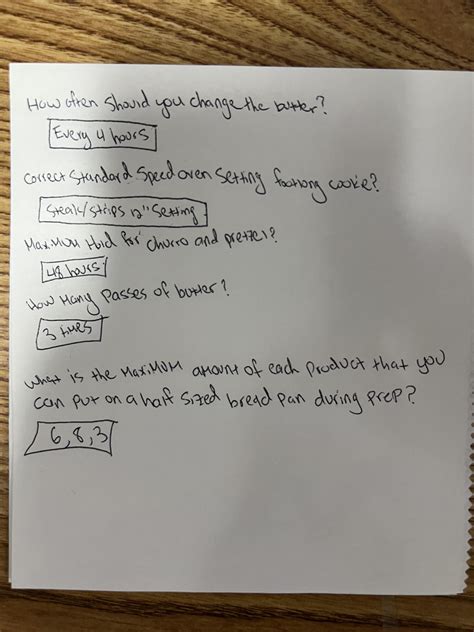 How often should you change the butter?
Every 4 hours
Correct Standard Speed oven setting footlong cookie?
Steak/strips 12" Setting
Maximum Hold for churro and pretzel?
48 hours
How Many Passes of butter?
3 times
What is the Maximum amount of each product that you
can put on a half sized bread pan during prep?
6, 8, 3